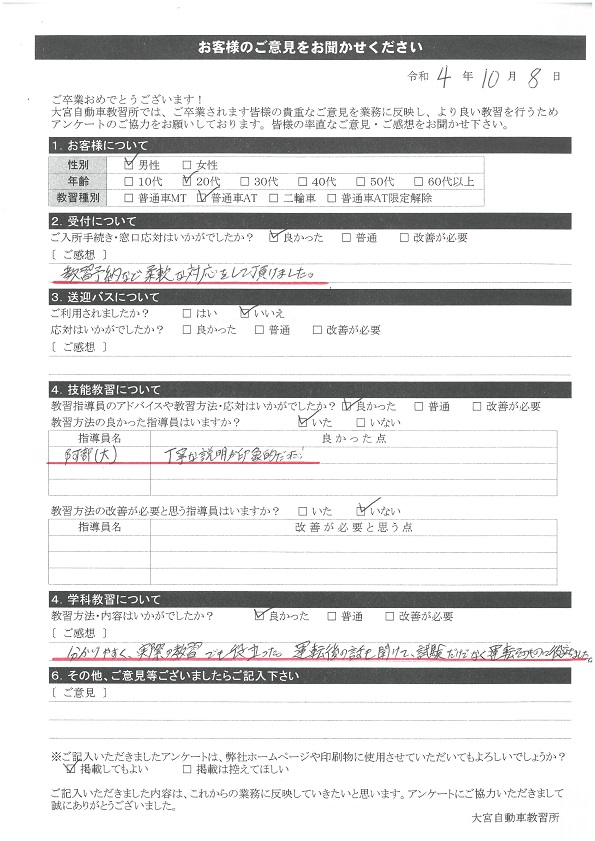 お客様のご意見をお聞かせください
令和 4 年 10 月 8 日
ご卒業おめでとうございます！
大宮自動車教習所では、ご卒業されます皆様の貴重なご意見を業務に反映し、より良い教習を行うため
アンケートのご協力をお願いしております。皆様の率直なご意見・ご感想をお聞かせ下さい。
1. お客様について
性別 ☑男性 □女性
年齢 □10代 ☑20代 □30代 □40代 □50代 □60代以上
教習種別 □普通車MT ☑普通車AT □二輪車 □普通車AT限定解除
2. 受付について
ご入所手続き・窓口応対はいかがでしたか？ ☑良かった □普通 □改善が必要
［ ご感想 ］
教習予約など柔軟な対応をして頂けました。
3. 送迎バスについて
ご利用されましたか？ □はい ☑いいえ
応対はいかがでしたか？ □良かった □普通 □改善が必要
［ ご感想 ］
4. 技能教習について
教習指導員のアドバイスや教習方法・応対はいかがでしたか？ ☑良かった □普通 □改善が必要
教習方法の良かった指導員はいますか？ ☑いた □いない
指導員名 良かった点
阿部(大) 丁寧な説明が印象的だった！
教習方法の改善が必要と思う指導員はいますか？ □いた ☑いない
指導員名 改善が必要と思う点
4. 学科教習について
教習方法・内容はいかがでしたか？ ☑良かった □普通 □改善が必要
［ ご感想 ］
分かりやすく、実際の教習でも役立った。運転後の話も聞けて、試験だけでなく運転そのものに役立ちました。
6. その他、ご意見等ございましたらご記入下さい
［ ご意見 ］
※ご記入いただきましたアンケートは、弊社ホームページや印刷物に使用させていただいてもよろしいでしょうか？
☑掲載してもよい □掲載は控えてほしい
ご記入いただきました内容は、これからの業務に反映していきたいと思います。アンケートにご協力いただきまして
誠にありがとうございました。
大宮自動車教習所